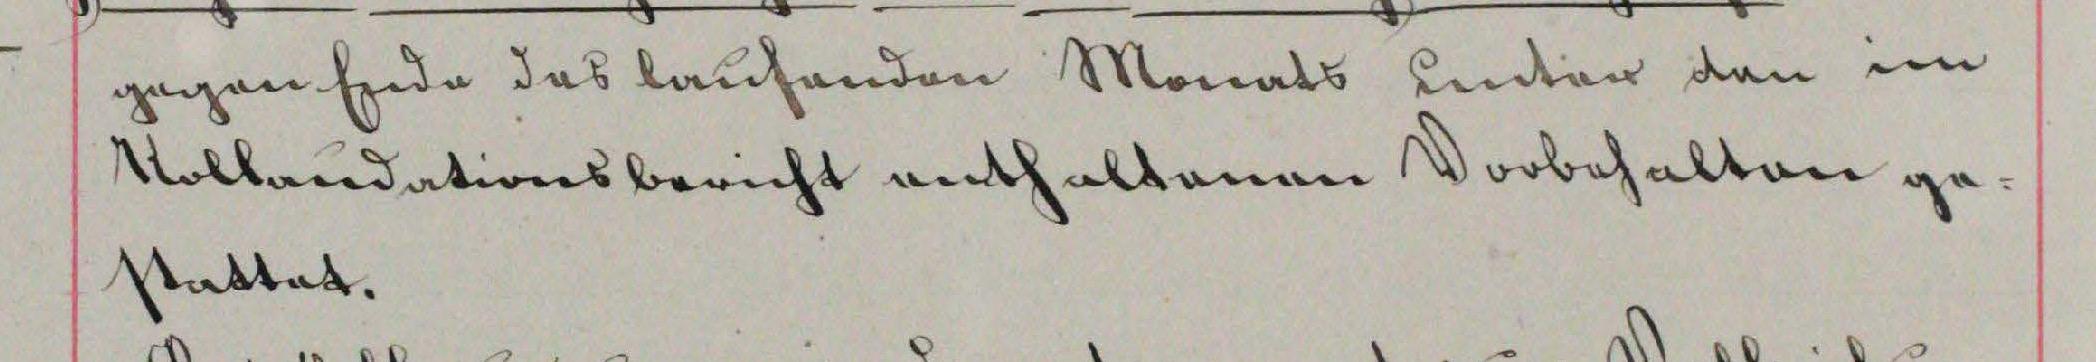 gegen Ende des laufenden Monats unter den im
Kollaudationsbericht enthaltenen Vorbehalten ge-
stattet.